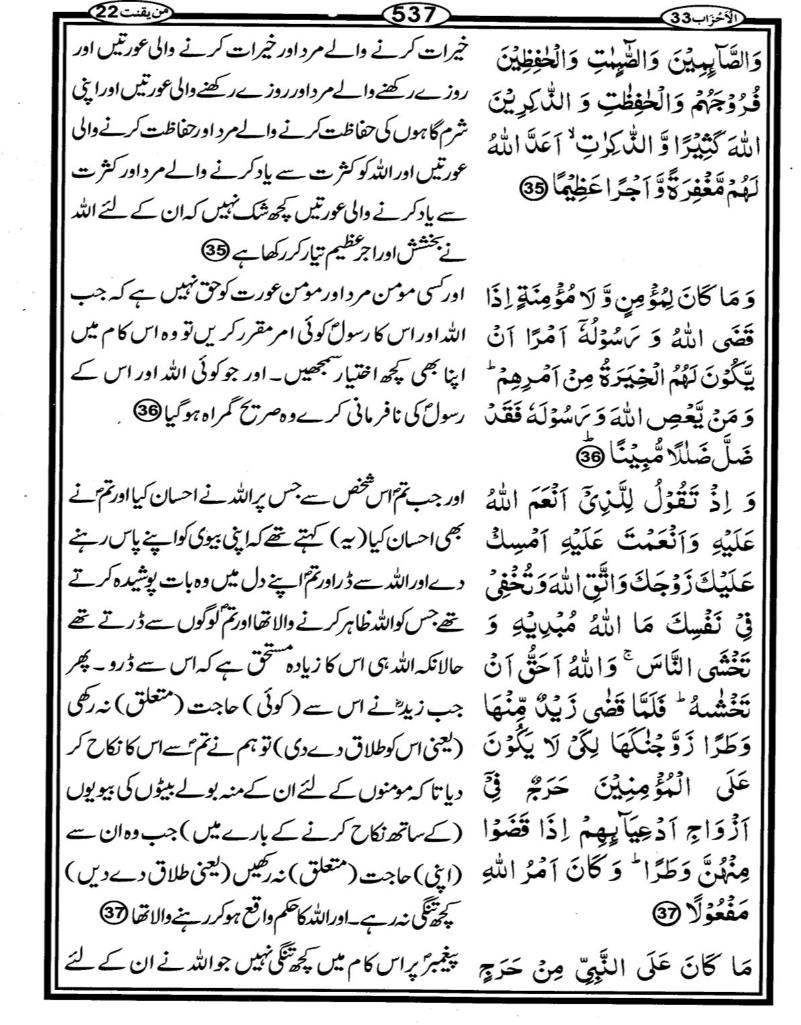 الاحزاب 33
537
من یقنت 22
وَالصَّآىِٕمِیْنَ وَالصّٰٓىِٕمٰتِ وَالْحٰفِظِیْنَ
فُرُوْجَهُمْ وَالْحٰفِظٰتِ وَ الذّٰكِرِیْنَ
اللّٰهَ كَثِیْرًا وَّ الذّٰكِرٰتِ ۙ اَعَدَّ اللّٰهُ
لَهُمْ مَّغْفِرَةً وَّ اَجْرًا عَظِیْمًا 35
وَ مَا كَانَ لِمُؤْمِنٍ وَّ لَا مُؤْمِنَةٍ اِذَا
قَضَی اللّٰهُ وَ رَسُوْلُهٗۤ اَمْرًا اَنْ
یَّكُوْنَ لَهُمُ الْخِیَرَةُ مِنْ اَمْرِهِمْ ؕ
وَ مَنْ یَّعْصِ اللّٰهَ وَ رَسُوْلَهٗ فَقَدْ
ضَلَّ ضَلٰلًا مُّبِیْنًا ؕ 36
وَ اِذْ تَقُوْلُ لِلَّذِیْۤ اَنْعَمَ اللّٰهُ
عَلَیْهِ وَ اَنْعَمْتَ عَلَیْهِ اَمْسِكْ
عَلَیْكَ زَوْجَكَ وَ اتَّقِ اللّٰهَ وَ تُخْفِیْ
فِیْ نَفْسِكَ مَا اللّٰهُ مُبْدِیْهِ وَ
تَخْشَی النَّاسَ ۚ وَ اللّٰهُ اَحَقُّ اَنْ
تَخْشٰىهُ ؕ فَلَمَّا قَضٰی زَیْدٌ مِّنْهَا
وَطَرًا زَوَّجْنٰكَهَا لِكَیْ لَا یَكُوْنَ
عَلَی الْمُؤْمِنِیْنَ حَرَجٌ فِیْۤ
اَزْوَاجِ اَدْعِیَآىِٕهِمْ اِذَا قَضَوْا
مِنْهُنَّ وَطَرًا ؕ وَ كَانَ اَمْرُ اللّٰهِ
مَفْعُوْلًا 37
مَا كَانَ عَلَی النَّبِیِّ مِنْ حَرَجٍ
خیرات کرنے والے مرد اور خیرات کرنے والی عورتیں اور
روزے رکھنے والے مرد اور روزے رکھنے والی عورتیں اور اپنی
شرم گاہوں کی حفاظت کرنے والے مرد اور حفاظت کرنے والی
عورتیں اور اللہ کو کثرت سے یاد کرنے والے مرد اور کثرت
سے یاد کرنے والی عورتیں کچھ شک نہیں کہ ان کے لئے اللہ
نے بخشش اور اجر عظیم تیار کر رکھا ہے 35
اور کسی مومن مرد اور مومن عورت کو حق نہیں ہے کہ جب
اللہ اور اس کا رسولؐ کوئی امر مقرر کریں تو وہ اس کام میں
اپنا بھی کچھ اختیار سمجھیں۔ اور جو کوئی اللہ اور اس کے
رسولؐ کی نافرمانی کرے وہ صریح گمراہ ہو گیا 36
اور جب تمؐ اس شخص سے جس پر اللہ نے احسان کیا اور تمؐ نے
بھی احسان کیا (یہ) کہتے تھے کہ اپنی بیوی کو اپنے پاس رہنے
دے اور اللہ سے ڈر اور تمؐ اپنے دل میں وہ بات پوشیدہ کرتے
تھے جس کو اللہ ظاہر کرنے والا تھا اور تمؐ لوگوں سے ڈرتے تھے
حالانکہ اللہ ہی اس کا زیادہ مستحق ہے کہ اس سے ڈرو۔ پھر
جب زیدؓ نے اس سے (کوئی) حاجت (متعلق) نہ رکھی
(یعنی اس کو طلاق دے دی) تو ہم نے تمؐ سے اس کا نکاح کر
دیا تاکہ مومنوں کے لئے ان کے منہ بولے بیٹوں کی بیویوں
(کے ساتھ نکاح کرنے کے بارے میں) جب وہ ان سے
(اپنی) حاجت (متعلق) نہ رکھیں (یعنی طلاق دے دیں)
کچھ تنگی نہ رہے۔ اور اللہ کا حکم واقع ہو کر رہنے والا تھا 37
پیغمبرؐ پر اس کام میں کچھ تنگی نہیں جو اللہ نے ان کے لئے